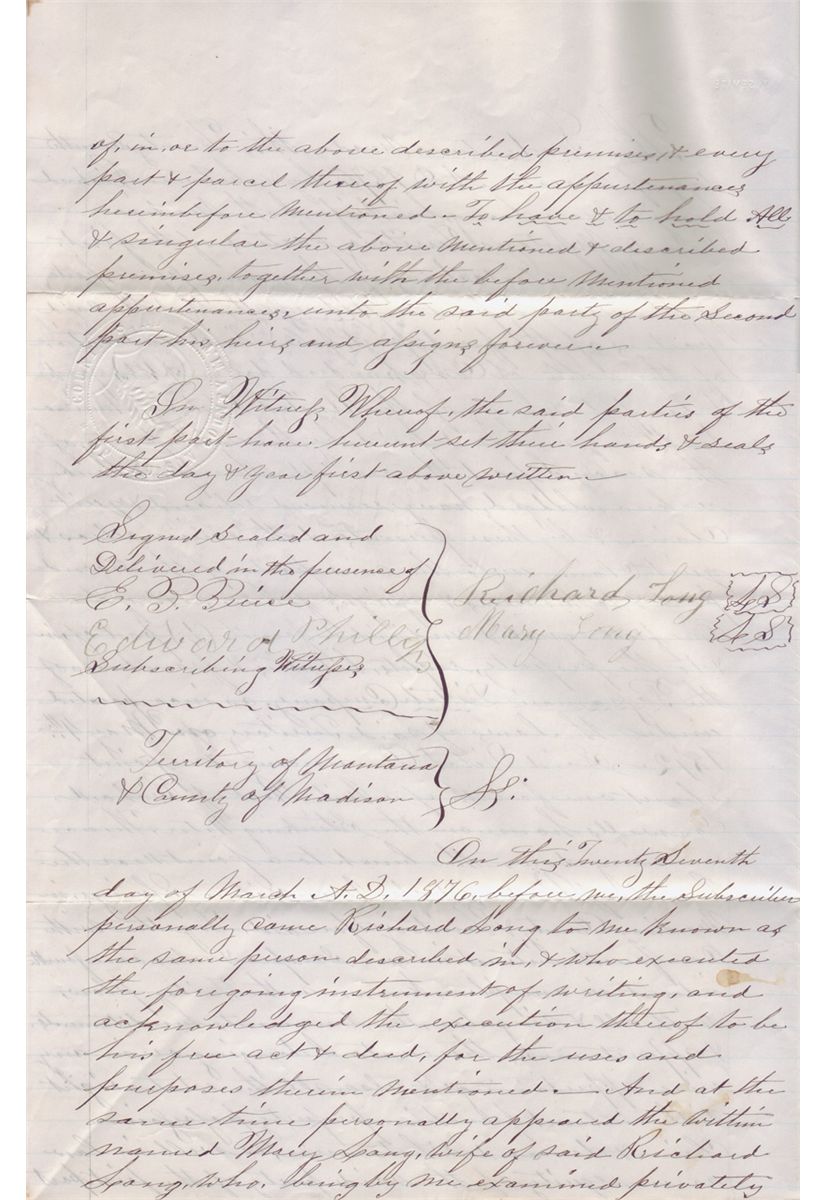 of, in, or to the above described premises, & every
part & parcel thereof with the appurtenances
hereinbefore mentioned - To have & to hold All
& singular the above mentioned & described
premises, together with the before mentioned
appurtenances, unto the said party of the second
part his heirs and assigns forever -
In Witness Whereof, the said parties of the
first part have hereunt set their hands & seals
the day & year first above written -
Signed sealed and
Delivered in the presence of
E. P.
Edward Phillips
Subscribing Witness
Richard Long LS
Mary Long LS
Territory of Montana
& County of Madison
SS:
On this Twenty Seventh
day of March A. D. 1876, before me, the Subscriber
personally came Richard Long to me known as
the same person described in, & who executed
the foregoing instrument of writing, and
acknowledged the execution thereof to be
his free act & deed, for the uses and
purposes therein mentioned - And at the
same time personally appeared the within
named Mary Long, wife of said Richard
Long, who, being by me examined privately